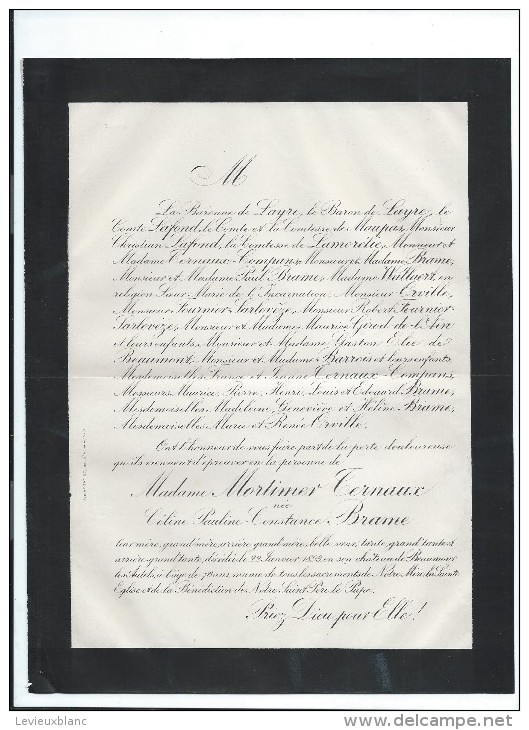 M
La Baronne de Layre, le Baron de Layre, le
Comte Lafond, le Comte et la Comtesse de Maupas, Monsieur
Christian Lafond, la Comtesse de Lamorélie, Monsieur et
Madame Ternaux-Compans, Monsieur et Madame Brame,
Monsieur et Madame Paul Brame, Madame Wallaert, en
religion Sœur Marie de l'Incarnation, Monsieur Orville,
Monsieur Fournier Sarlovèze, Monsieur Robert Fournier
Sarlovèze, Monsieur et Madame Maurice Girod de l'Ain
et leurs enfants, Monsieur et Madame Gaston Elie de
Beaumont, Monsieur et Madame Barrois et leurs enfants,
Mesdemoiselles France et Jeanne Ternaux-Compans,
Messieurs Maurice, Pierre, Henri, Louis et Edouard Brame,
Mesdemoiselles Madeleine, Geneviève et Hélène Brame,
Mesdemoiselles Marie et Renée Orville,
Ont l'honneur de vous faire part de la perte douloureuse
qu'ils viennent d'éprouver en la personne de
Madame Mortimer Ternaux
née
Céline-Pauline-Constance Brame
leur mère, grand'mère, arrière grand'mère, belle-sœur, tante, grand'tante et
arrière grand'tante, décédée le 22 Janvier en son château de Beaumont
les Autels, à l'âge de ans, munie de tous les sacrements de Notre Mère la Sainte
Eglise et de la Bénédiction de Notre Saint Père le Pape.
Priez Dieu pour Elle!
Levieuxblanc
www.delcampe.net